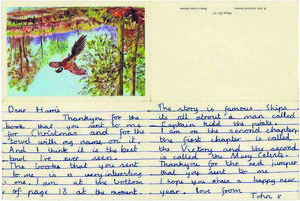 Dear Harris
Thankyou for the
book that you sent to me
for Christmas and for the
towel with my name on it.
And I think it is the best
towl I've ever seen.
The book that you sent
to me is a very interesting
one. I am at the bottom
of page 18 at the moment
The story is famous Ships
its all about a man called
captain kidd the pirate.
I am on the second chapter,
the first chapter is called
the Victory and the second
is called "the Mary Celeste".
Thankyou for the red jumper
that you sent to me.
I hope you have a happy new
year. love from
John x